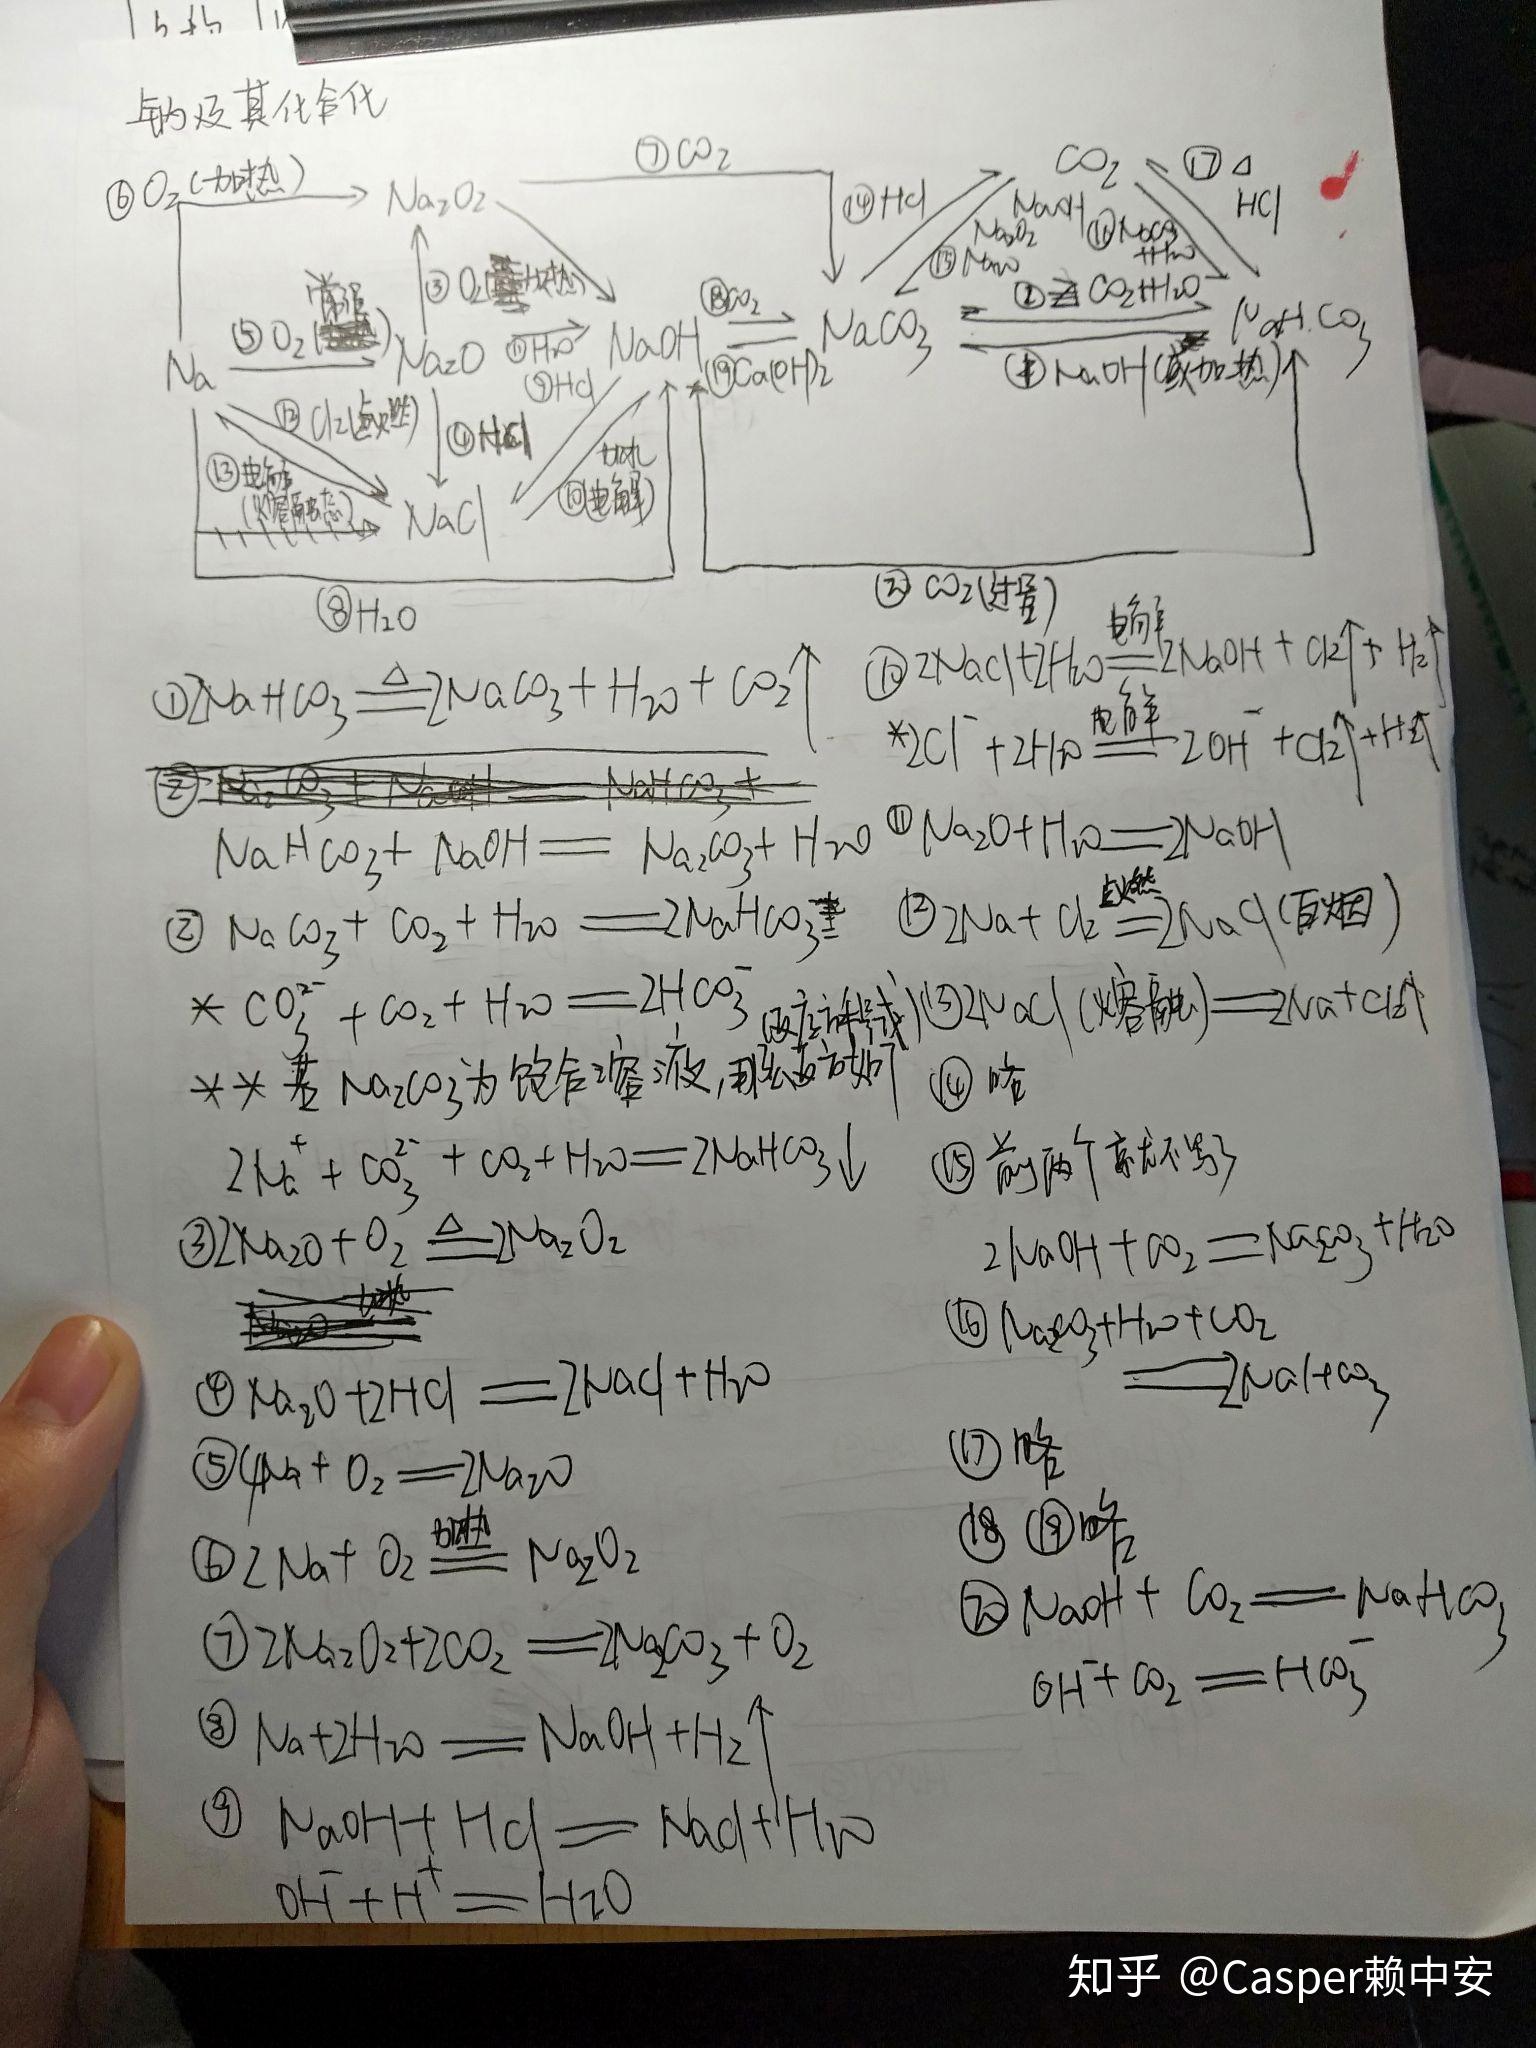 钠及其化合化
⑦CO2
⑥O2(加热)
Na2O2
CO2
⑰△
HCl
⑭HCl
NaOH
Na2O2
⑮Na2O
⑯NaCO3
+H2O
常温
③O2(加热)
⑤O2
⑱CO2
②CO2+H2O
Na
Na2O
⑪H2O
NaOH
NaCO3
NaH.CO3
⑨HCl
⑲Ca(OH)2
①NaOH(或加热)
⑫Cl2(点燃)
④HCl
⑬电解
(熔融状态)
NaCl
加水
⑩(电解)
⑧H2O
⑳CO2(过量)
①2NaHCO3=△=2NaCO3+H2O+CO2↑
②Na2CO3+NaOH=NaHCO3+
NaHCO3+NaOH=Na2CO3+H2O
②NaCO3+CO2+H2O=2NaHCO3
*CO3²⁻+CO2+H2O=2HCO3⁻
(反应方程式)
**若Na2CO3为饱合溶液,
2Na⁺+CO3²⁻+CO2+H2O=2NaHCO3↓
③2Na2O+O2=△=2Na2O2
④Na2O+2HCl=2NaCl+H2O
⑤4Na+O2=2Na2O
⑥2Na+O2=加热=Na2O2
⑦2Na2O2+2CO2=2Na2CO3+O2
⑧Na+2H2O=NaOH+H2↑
⑨NaOH+HCl=NaCl+H2O
OH⁻+H⁺=H2O
⑩2NaCl+2H2O=电解=2NaOH+Cl2↑+H2↑
*2Cl⁻+2H2O=电解=2OH⁻+Cl2↑+H2↑
⑪Na2O+H2O=2NaOH
⑫2Na+Cl2=点燃=2NaCl(白烟)
⑬2NaCl(熔融)=2Na+Cl2↑
⑭略
⑮前两个就不写了
2NaOH+CO2=Na2CO3+H2O
⑯Na2CO3+H2O+CO2
=2NaHCO3
⑰略
⑱⑲略
⑳NaOH+CO2=NaHCO3
OH⁻+CO2=HCO3⁻
知乎 @Casper赖中安